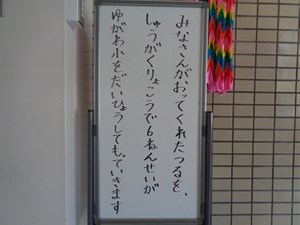 みなさんがおってくれたつるを、
しゅうがくりょこうで6ねんせいが
ゆがわ小をだいひょうしてもっていきます